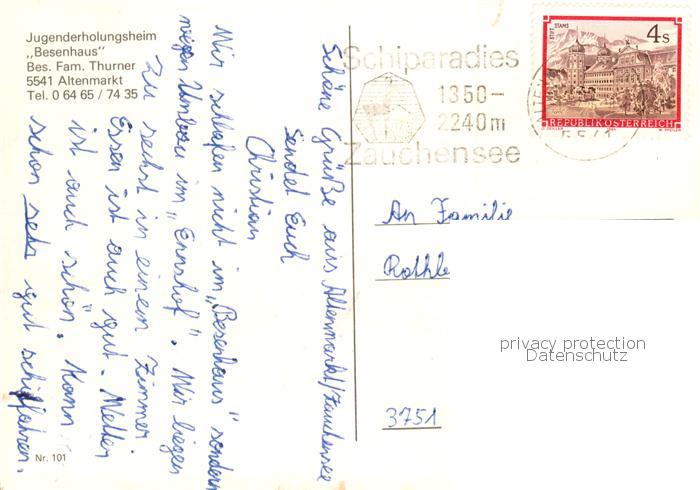 Jugenderholungsheim
„Besenhaus"
Bes. Fam. Thurner
5541 Altenmarkt
Tel. 0 64 65 / 74 35
Schöne Grüße aus Altenmarkt/Zauchensee
sendet Euch
Christian
Wir schlafen nicht im „Besenhaus" sondern
wegen Umbau im „Ennshof". Wir liegen
zu sechst in einem Zimmer.
Essen ist auch gut. Wetter
ist auch schön. Kann
schon sehr gut schifahren.
Nr. 101
Schiparadies
1350-
2240m
Zauchensee
5541
STIFT STAMS
4 S
REPUBLIK ÖSTERREICH
An Familie
Rothle
3751
privacy protection
Datenschutz